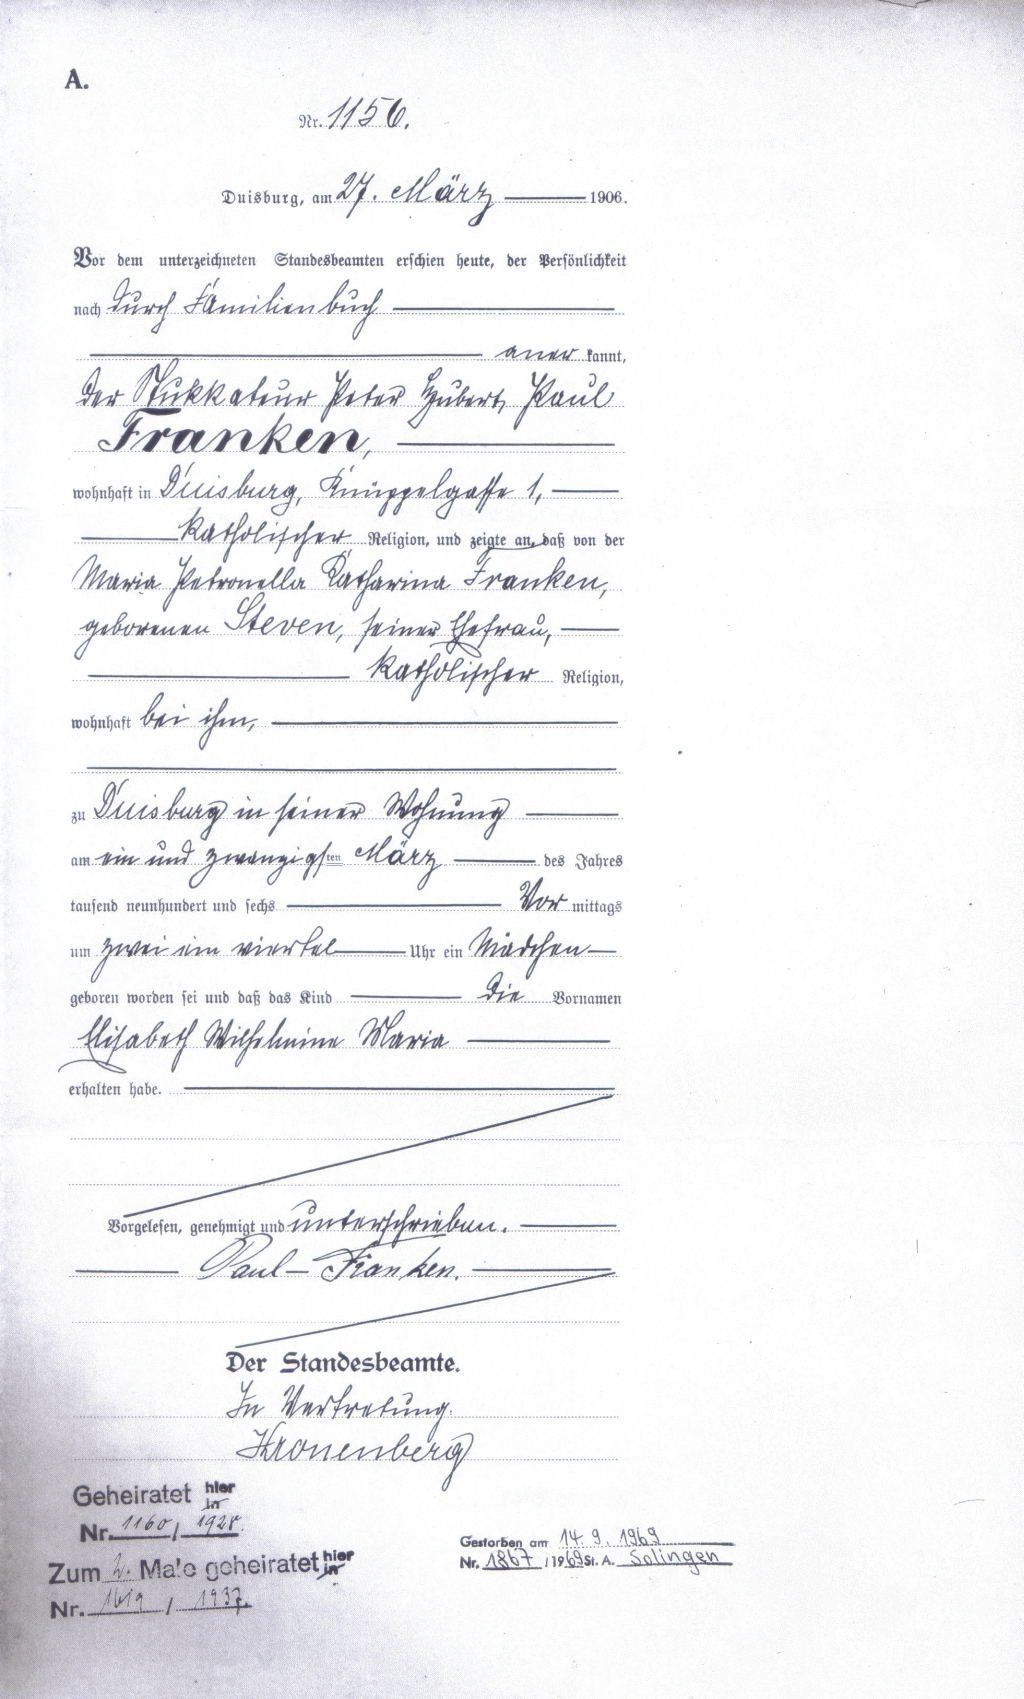 A.
Nr. 1156.
Duisburg, am 27. März 1906.
Vor dem unterzeichneten Standesbeamten erschien heute, der Persönlichkeit
nach durch Familienbuch
aner kannt,
der Stukkateur Peter Hubert Paul
Franken,
wohnhaft in Duisburg, Knüppelgasse 1,
katholischer Religion, und zeigte an, daß von der
Maria Petronella Katharina Franken,
geborenen Steven, seiner Ehefrau,
katholischer Religion,
wohnhaft bei ihm,
zu Duisburg in seiner Wohnung
am ein und zwanzigsten März des Jahres
tausend neunhundert und sechs Vor mittags
um zwei ein viertel Uhr ein Mädchen
geboren worden sei und daß das Kind die Vornamen
Elisabeth Wilhelmine Maria
erhalten habe.
Vorgelesen, genehmigt und unterschrieben.
Paul Franken.
Der Standesbeamte.
In Vertretung.
Kronenberg
Geheiratet hier
in
Nr. 1160 / 1928.
Zum 2. Male geheiratet hier
in
Nr. 1619 / 1937.
Gestorben am 14.9.1969
Nr. 1867 / 1969 St. A. Solingen